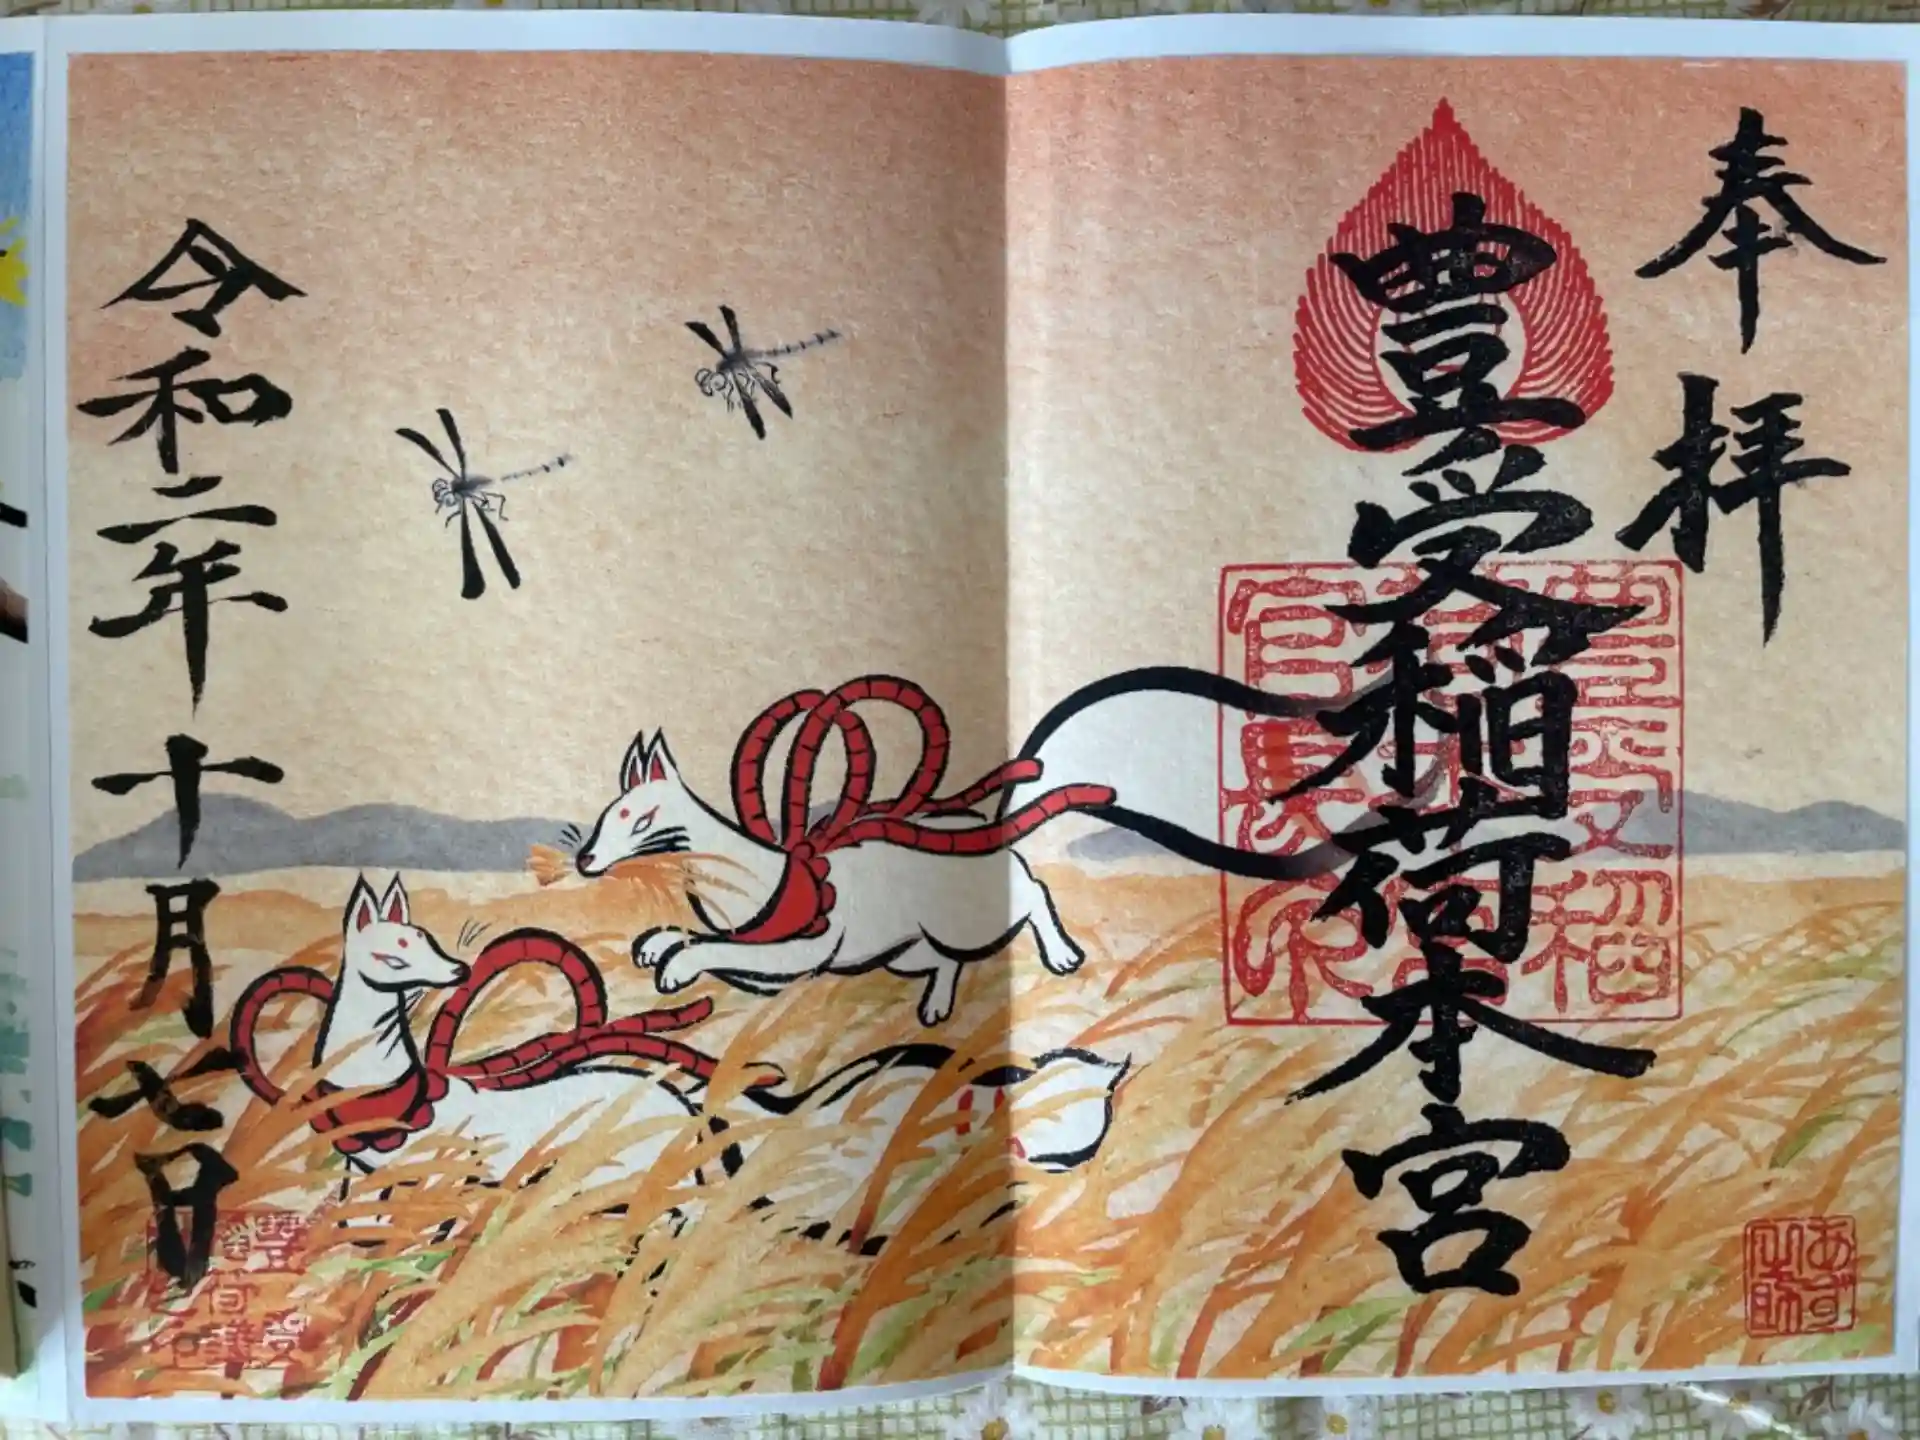 奉拝
豊受稲荷本宮
令和二年十月七日